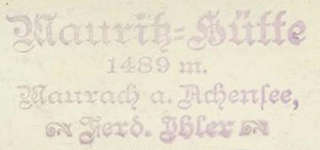 Mauritz-Hütte
1489 m.
Maurach a. Achensee,
Ferd. Ihler